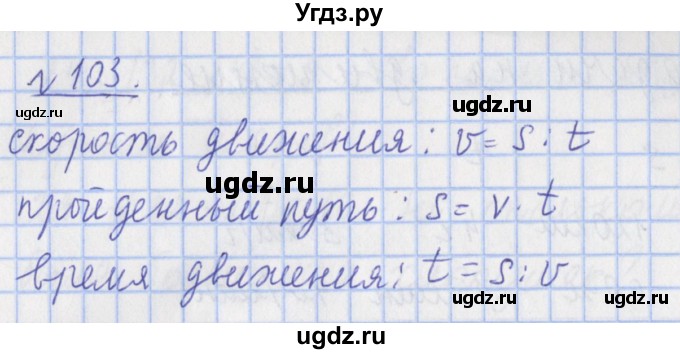 Угдз.ру
№ 103.
ugdz.ru ugdz.ru
скорость движения: v = s : t
ugdz.ru
пройденный путь: s = v · t
ugdz.ru ugdz.ru
время движения: t = s : v
ugdz.ru